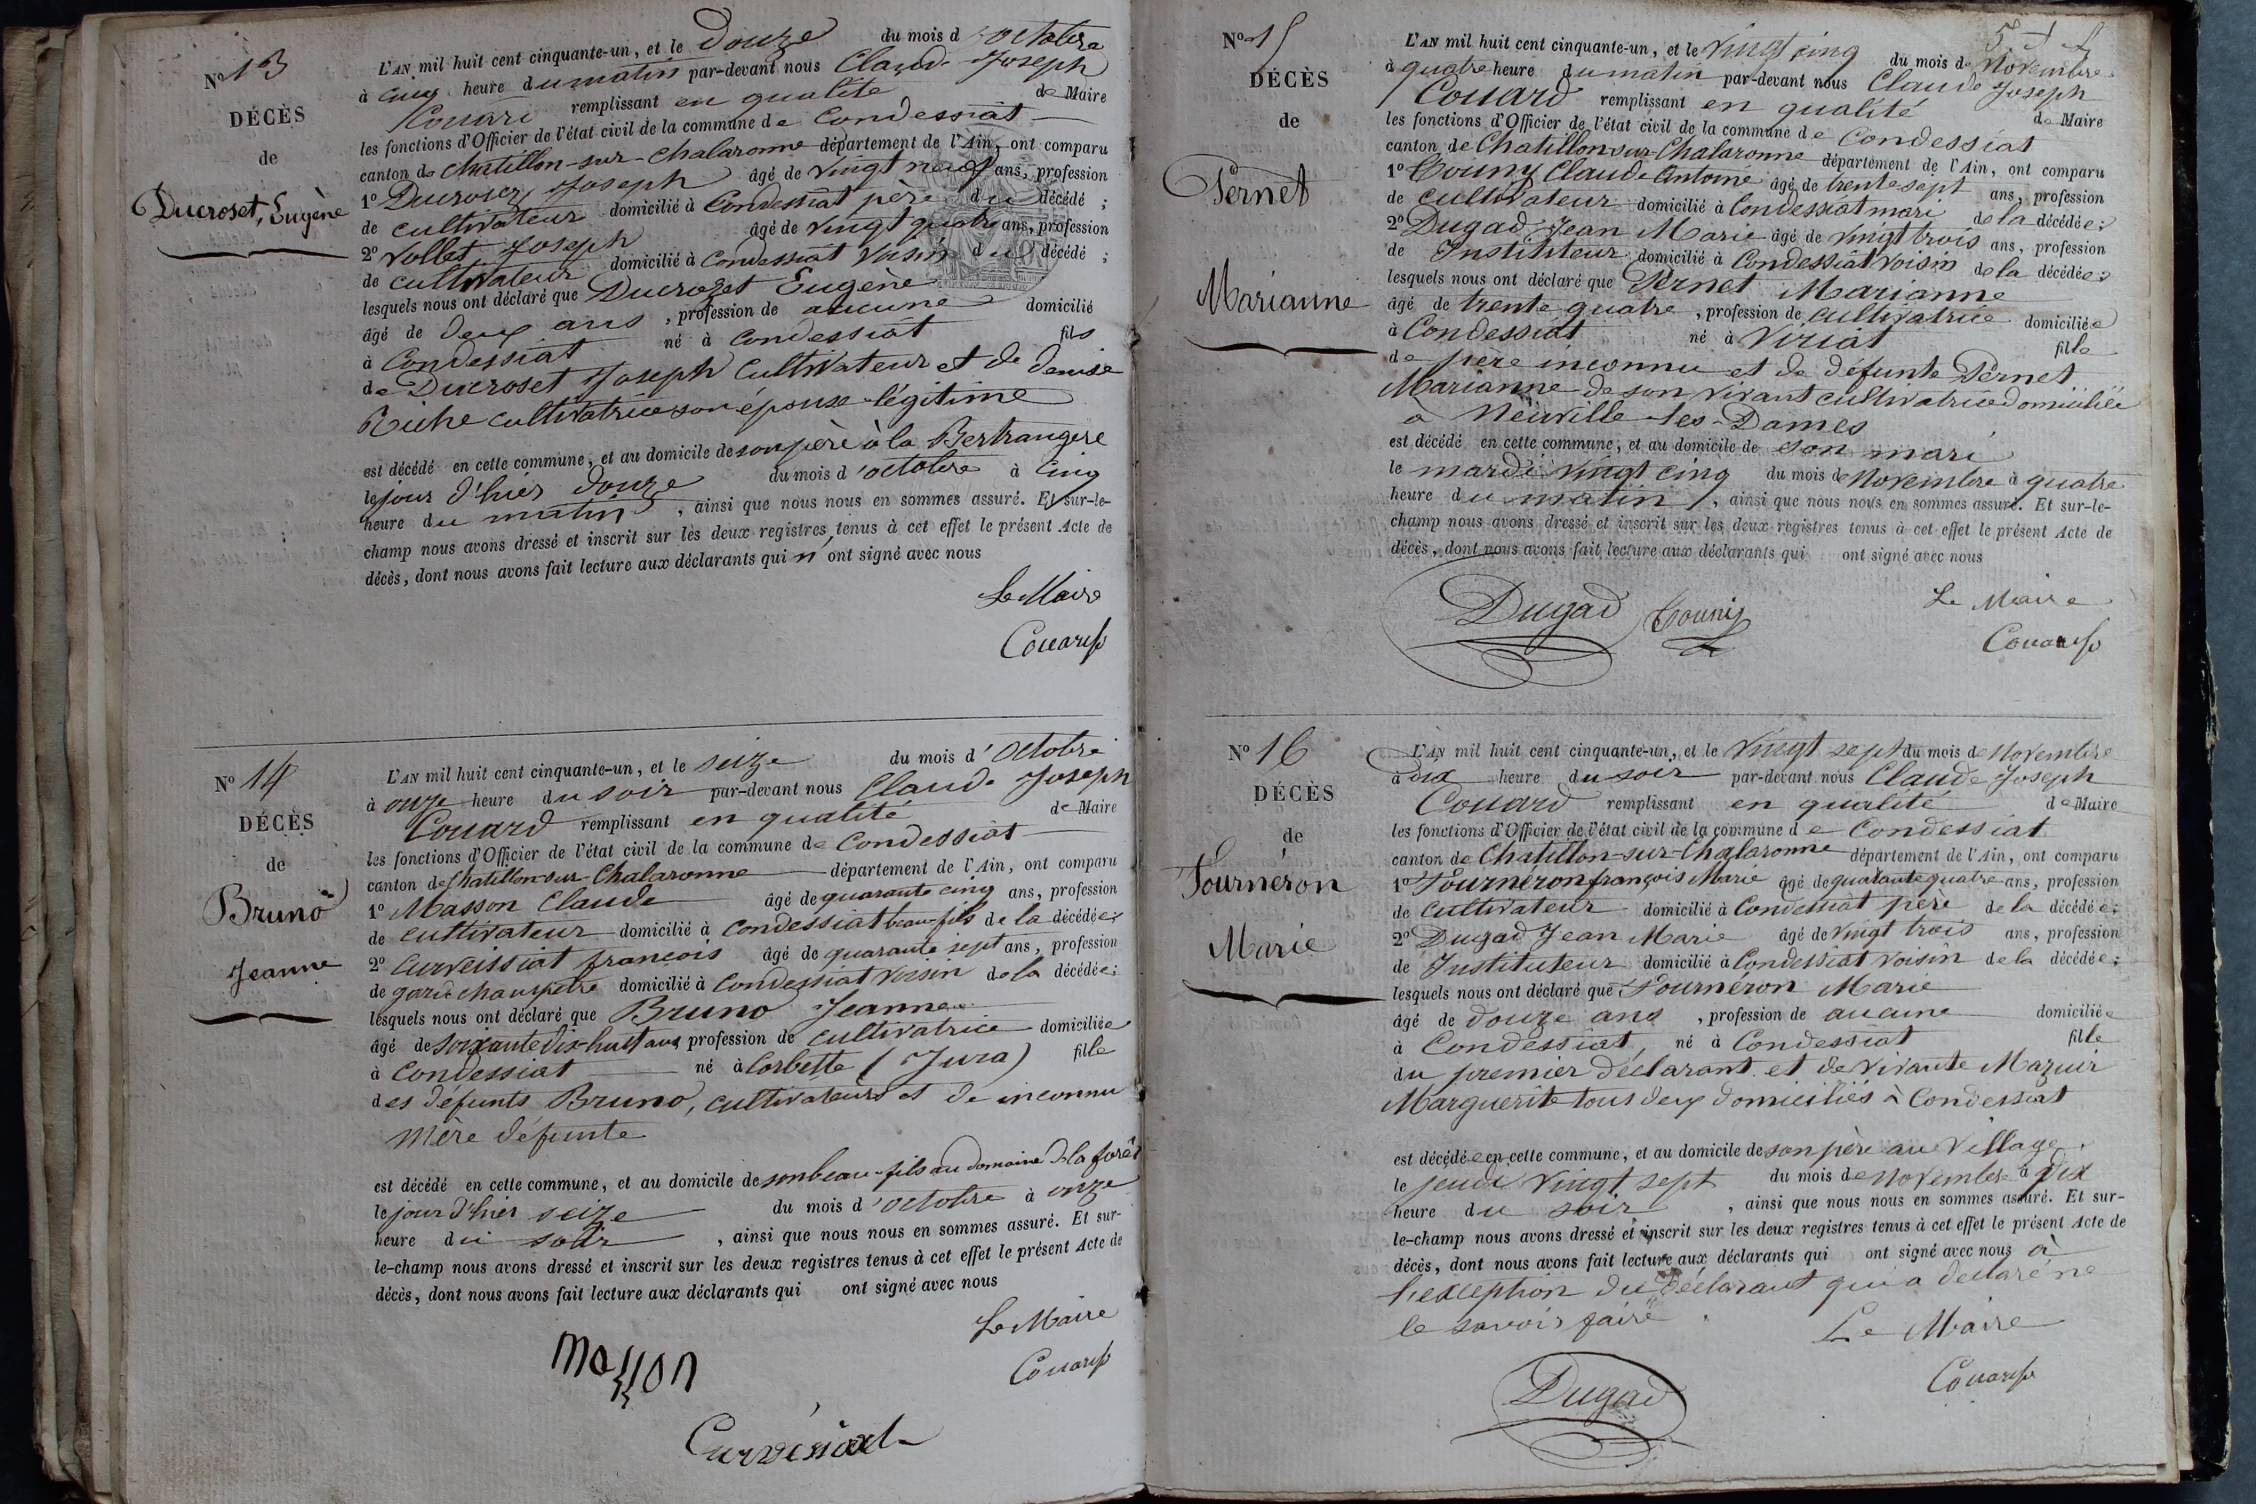 N° 13
DÉCÈS
de
Ducroset, Eugène
L'AN mil huit cent cinquante-un, et le Douze du mois d'octobre
à cinq heure du matin par-devant nous Claude Joseph
Couard remplissant en qualité de Maire
les fonctions d'Officier de l'état civil de la commune de Condessiat
canton de Chatillon-sur-Chalaronne département de l'Ain, ont comparu
1° Ducroset Joseph âgé de vingt neuf ans, profession
de cultivateur domicilié à Condessiat père du décédé ;
2° Vollet Joseph âgé de vingt quatre ans, profession
de cultivateur domicilié à Condessiat voisin du décédé ;
lesquels nous ont déclaré que Ducroset Eugène
âgé de deux ans , profession de aucune domicilié
à Condessiat né à Condessiat fils
de Ducroset Joseph cultivateur et de Denise
Riche cultivatrice son épouse légitime
est décédé en cette commune, et au domicile de son père à la Bertrangere
le jour d'hier douze du mois d'octobre à cinq
heure du matin , ainsi que nous nous en sommes assuré. Et sur-le-
champ nous avons dressé et inscrit sur les deux registres tenus à cet effet le présent Acte de
décès, dont nous avons fait lecture aux déclarants qui n'ont signé avec nous
Le Maire
Couard
N° 14
DÉCÈS
de
Bruno
Jeanne
L'AN mil huit cent cinquante-un, et le seize du mois d'Octobre
à onze heure du soir par-devant nous Claude Joseph
Couard remplissant en qualité de Maire
les fonctions d'Officier de l'état civil de la commune de Condessiat
canton de Chatillon-sur-Chalaronne département de l'Ain, ont comparu
1° Masson Claude âgé de quarante cinq ans, profession
de cultivateur domicilié à Condessiat beau-fils de la décédée ;
2° Curveissiat françois âgé de quarante sept ans, profession
de garde champetre domicilié à Condessiat voisin de la décédée ;
lesquels nous ont déclaré que Bruno Jeanne
âgé de soixante dix-huit ans profession de cultivatrice domiciliée
à Condessiat né à Corbette (Jura) fille
des défunts Bruno, cultivateurs et de inconnu
mère défunte
est décédé en cette commune, et au domicile de son beau-fils au domaine de la forêt
le jour d'hier seize du mois d'octobre à onze
heure du soir , ainsi que nous nous en sommes assuré. Et sur-
le-champ nous avons dressé et inscrit sur les deux registres tenus à cet effet le présent Acte de
décès, dont nous avons fait lecture aux déclarants qui ont signé avec nous
Le Maire
Couard
Masson
Curvéssiat
N° 15
DÉCÈS
de
Pernet
Marianne
L'AN mil huit cent cinquante-un, et le vingt cinq du mois de Novembre
à quatre heure du matin par-devant nous Claude Joseph
Couard remplissant en qualité de Maire
les fonctions d'Officier de l'état civil de la commune de Condessiat
canton de Chatillon sur Chalaronne département de l'Ain, ont comparu
1° Couny Claude Antoine âgé de trente sept ans, profession
de cultivateur domicilié à Condessiat mari de la décédée ;
2° Dugad Jean Marie âgé de vingt trois ans, profession
de Instituteur domicilié à Condessiat voisin de la décédée ;
lesquels nous ont déclaré que Pernet Marianne
âgé de trente quatre , profession de cultivatrice domiciliée
à Condessiat né à Viriat fille
de père inconnu et de défunte Pernet
Marianne de son vivant cultivatrice domiciliée
à Neuville-les-Dames
est décédé en cette commune, et au domicile de son mari
le mardi vingt cinq du mois de Novembre à quatre
heure du matin , ainsi que nous nous en sommes assuré. Et sur-le-
champ nous avons dressé et inscrit sur les deux registres tenus à cet effet le présent Acte de
décès, dont nous avons fait lecture aux déclarants qui ont signé avec nous
Dugad Couniy
Le Maire
Couard
N° 16
DÉCÈS
de
Fournéron
Marie
L'AN mil huit cent cinquante-un, et le vingt sept du mois de Novembre
à dix heure du soir par-devant nous Claude Joseph
Couard remplissant en qualité de Maire
les fonctions d'Officier de l'état civil de la commune de Condessiat
canton de Chatillon-sur-Chalaronne département de l'Ain, ont comparu
1° Fournéron françois Marie âgé de quarante quatre ans, profession
de cultivateur domicilié à Condessiat père de la décédée ;
2° Dugad Jean Marie âgé de vingt trois ans, profession
de Instituteur domicilié à Condessiat voisin de la décédée ;
lesquels nous ont déclaré que Fournéron Marie
âgé de douze ans , profession de aucune domiciliée
à Condessiat, né à Condessiat fille
du premier déclarant et de vivante Mazuir
Marguerite tous deux domiciliés à Condessiat
est décédée en cette commune, et au domicile de son père au village
le jeudi vingt sept du mois de Novembre à dix
heure du soir , ainsi que nous nous en sommes assuré. Et sur-
le-champ nous avons dressé et inscrit sur les deux registres tenus à cet effet le présent Acte de
décès, dont nous avons fait lecture aux déclarants qui ont signé avec nous à
l'exception du déclarant qui a déclaré ne
le savoir faire
Le Maire
Couard
Dugad